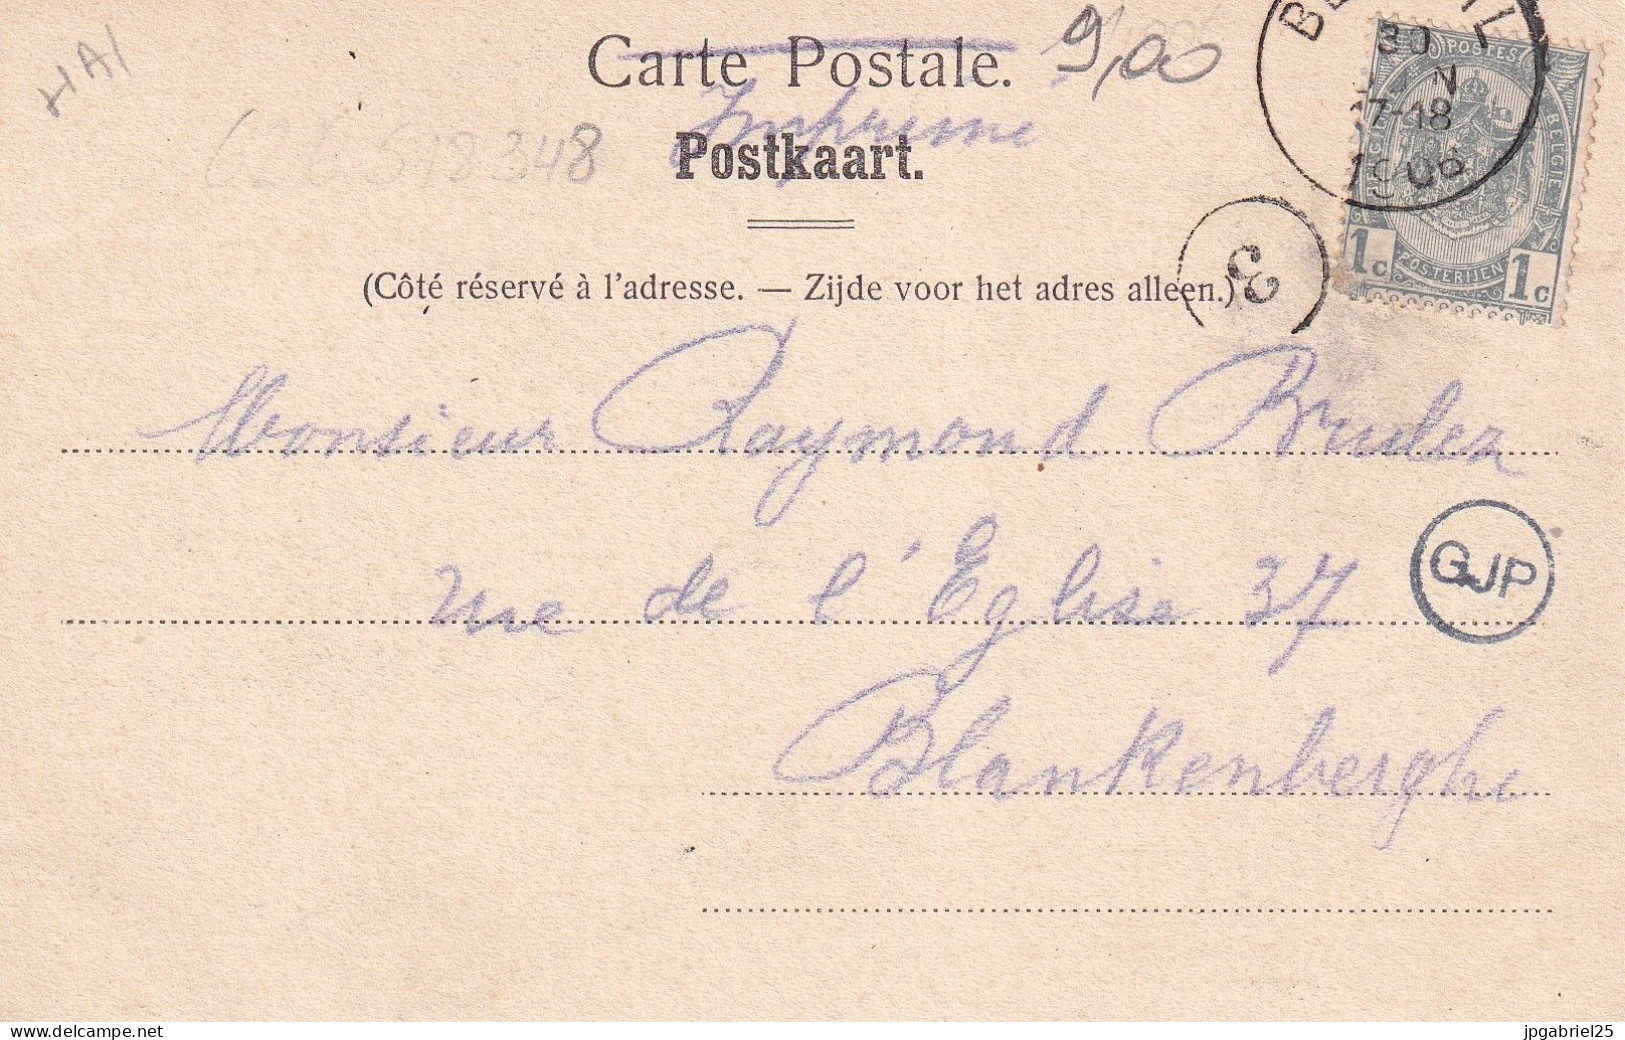 HAI
9,00
Carte Postale.
Imprime
Postkaart.
(Côté réservé à l'adresse. — Zijde voor het adres alleen.)
30
17-18
1906
POSTES
BELGIQUE BELGIE
POSTERIJEN
1c 1c
3
Monsieur Raymond
rue de l'Eglise 37
GJP
Blankenberghe
delcampe.net
jpgabriel25